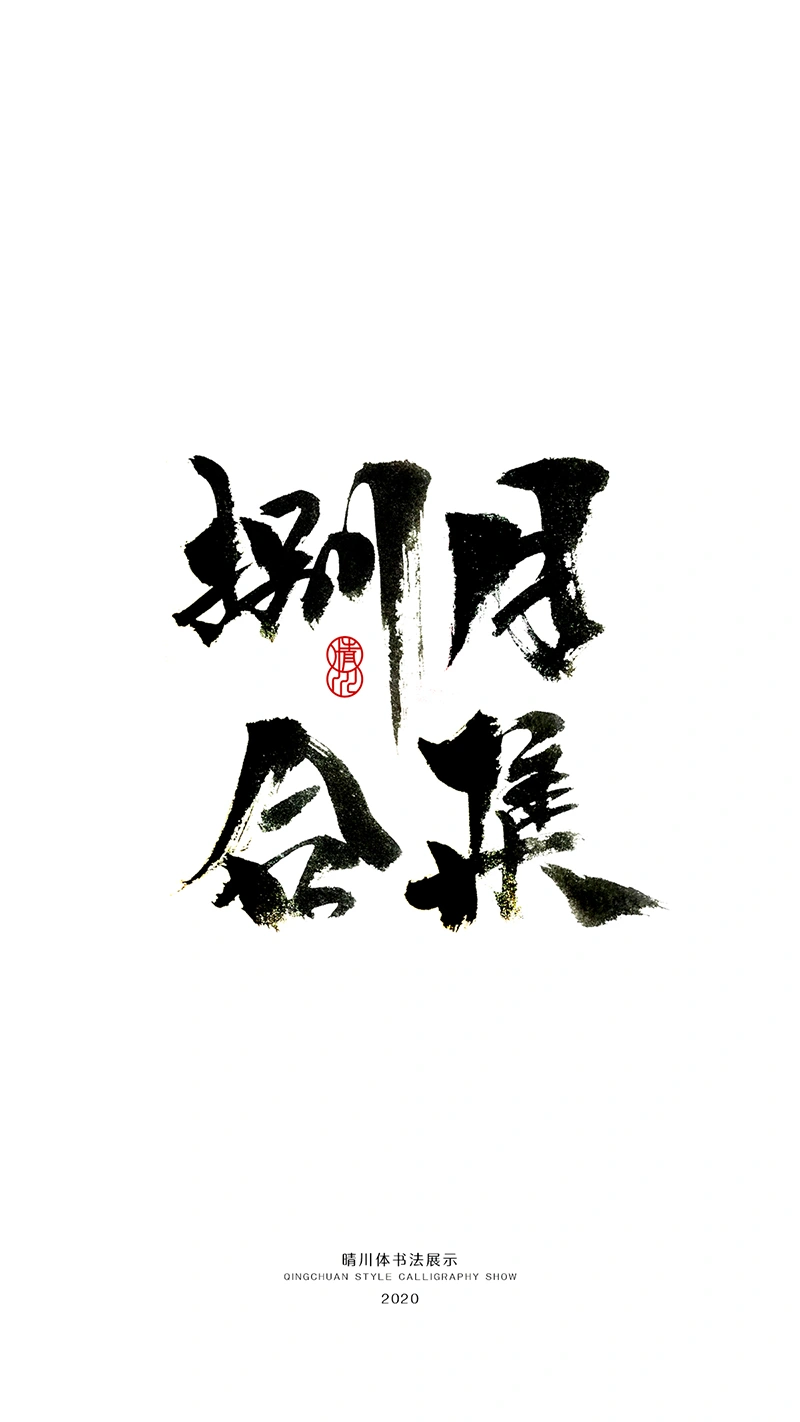 捌月
晴川
合集
晴川体书法展示
QINGCHUAN STYLE CALLIGRAPHY SHOW
2020